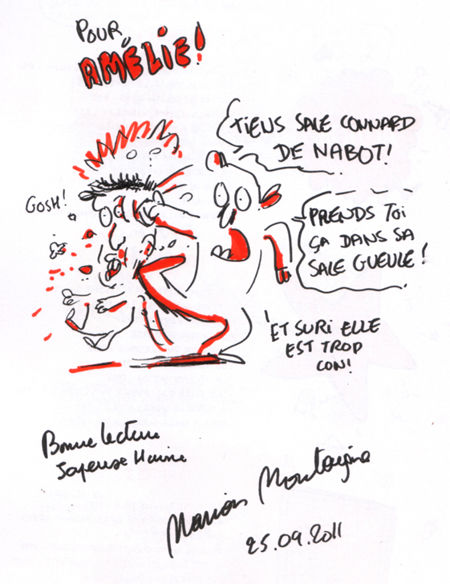 POUR
AMÉLIE!
TIENS SALE CONNARD
DE NABOT!
GOSH!
PRENDS TOI
ÇA DANS SA
SALE GUEULE!
ET SURI ELLE
EST TROP
CON!
Bonne lecture
Joyeuse
Marion Montaigne
25.09.2011